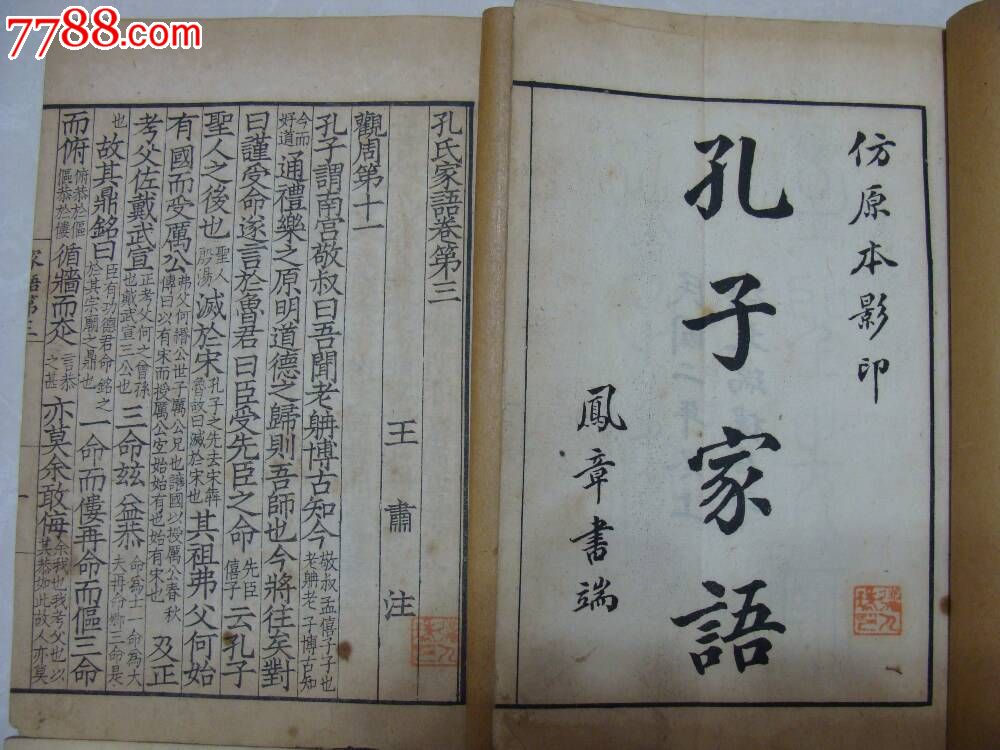 7788.com
仿原本影印
孔子家語
鳳章書端
孔氏家語卷第三
王肅注
觀周第十一
孔子謂南宫敬叔曰吾聞老聃博古知今敬叔孟僖子子也老聃老子博古知
今而好道通禮樂之原明道德之歸則吾師也今將往矣對
曰謹受命遂言於魯君曰臣受先臣之命先臣僖子云孔子
聖人之後也聖人殷湯滅於宋孔子之先去宋奔魯故曰滅於宋也其祖弗父何始
有國而受厲公弗父何緡公世子厲公兄也讓國以授厲公春秋傳曰以有宋而授厲公始始有也始有宋也及正
考父佐戴武宣正考父何之曾孫也戴武宣三公也三命兹益恭命為士一命為大夫再命卿三命是
也故其鼎銘曰臣有功德君命銘之於其宗廟之鼎也一命而僂再命而傴三命
而俯俯恭於傴傴恭於僂循牆而走言恭之甚亦莫余敢侮余我也我考父也以其恭如此故人亦莫
家語第三